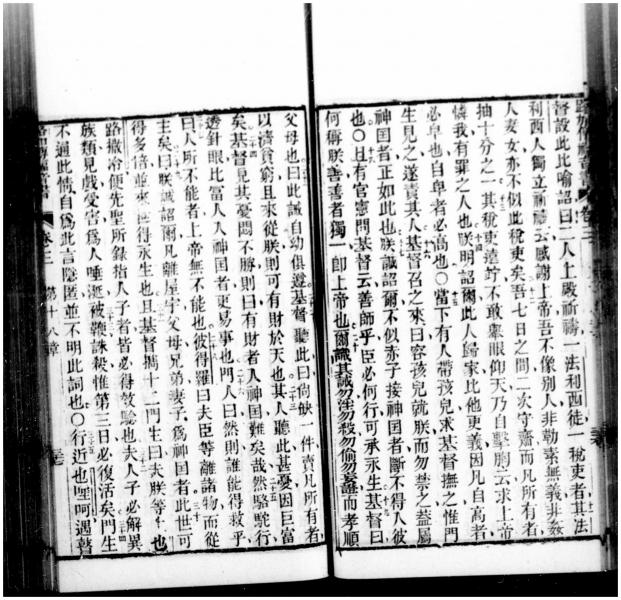 路加傳福音書 卷三
督設此比喻詔曰二人上殿祈禱一法利西徒一稅吏者其法
利西人獨立祈禱云感謝上帝吾不像別人非勒索無義非姦
人妻女亦不似此稅吏矣吾七日之間二次守齋而凡所有者
抽十分之一其稅吏遠竚不敢舉眼仰天乃自擊胸云求上帝
憐我有罪之人也朕明詔爾此人歸家比他更義因凡自高者
必卑也自卑者必高也○當下有人帶孩兒求基督撫之惟門
生見之遂責其人基督召之來曰容孩兒就朕而勿禁之蓋屬
神國者正如此也朕誠詔爾不似赤子接神國者斷不得入彼
也○且有官憲問基督云善師乎臣必何行可承永生基督曰
何稱朕善善者獨一卽上帝也爾識其誡勿淫勿殺勿偷勿妄證而孝順
父母也曰此誡自幼俱遵基督聽此曰尚缺一件賣凡所有者
以濟貧窮且來從朕則可有財於天也其人聽此甚憂因巨富
矣基督見其憂悶不勝則曰有財者入神國難矣哉然駱駝行
透針眼比富人入神國者更易事也門人曰然則誰能得救乎
曰人所不能者上帝無不能也彼得羅曰夫臣等離諸物而從
主矣曰朕誠詔爾凡離屋宇父母兄弟妻子爲神國者此世可
得多倍並來世得永生也且基督攜十二門生曰夫朕等 也
路撒冷便先聖所錄指人子者皆必得效驗也夫人子必解異
族類見戲受害爲人唾涎被鞭誅殺惟第三日必復活矣門生
不通此情自爲此言隱匿並不明此詞也○行近也哩呵遇瞽
卷三 第十八章